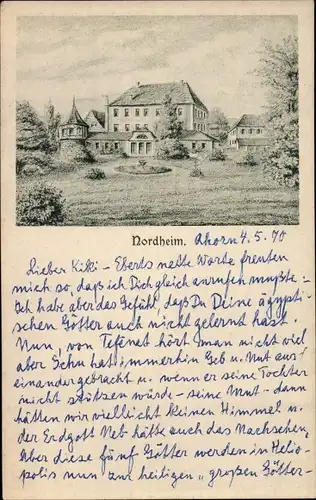 Nordheim. Ahorn 4.5.70
Lieber Kiki – Eberts nette Worte freuten
mich so, daß ich Dich gleich anrufen mußte –
Ich habe aber das Gefühl daß Du Deine ägypti-
schen Götter auch nicht gelernt hast.
Nun, von Tefenet hört man nicht viel
aber Schu hat immerhin Geb u. Nut aus
einandergebracht u. wenn er seine Tochter
nicht stützen würde – seine Nut – dann
hätten wir vielleicht keinen Himmel u.
der Erdgott Neb hätte auch das Nachsehen.
Aber diese fünf Götter werden in Helio-
polis nun zur heiligen „großen Götter-